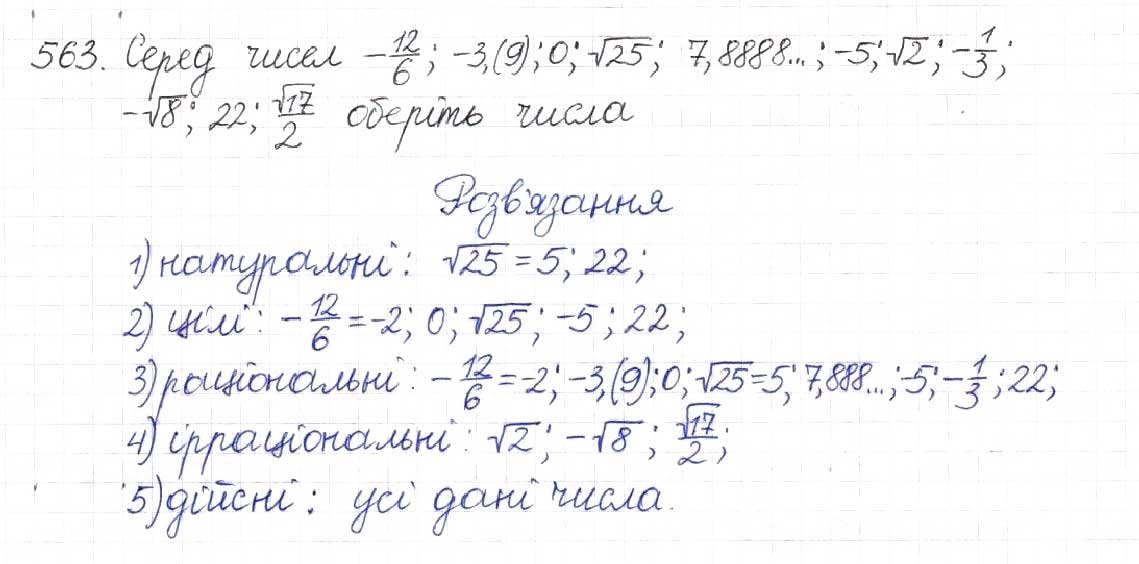 563. Серед чисел -12/6; -3,(9); 0; √25; 7,8888...; -5; √2; -1/3;
-√8; 22; √17/2 оберіть числа
Розв'язання
1) натуральні: √25 = 5; 22;
2) цілі: -12/6 = -2; 0; √25; -5; 22;
3) раціональні: -12/6 = -2; -3,(9); 0; √25 = 5; 7,888...; -5; -1/3; 22;
4) ірраціональні: √2; -√8; √17/2;
5) дійсні: усі дані числа.